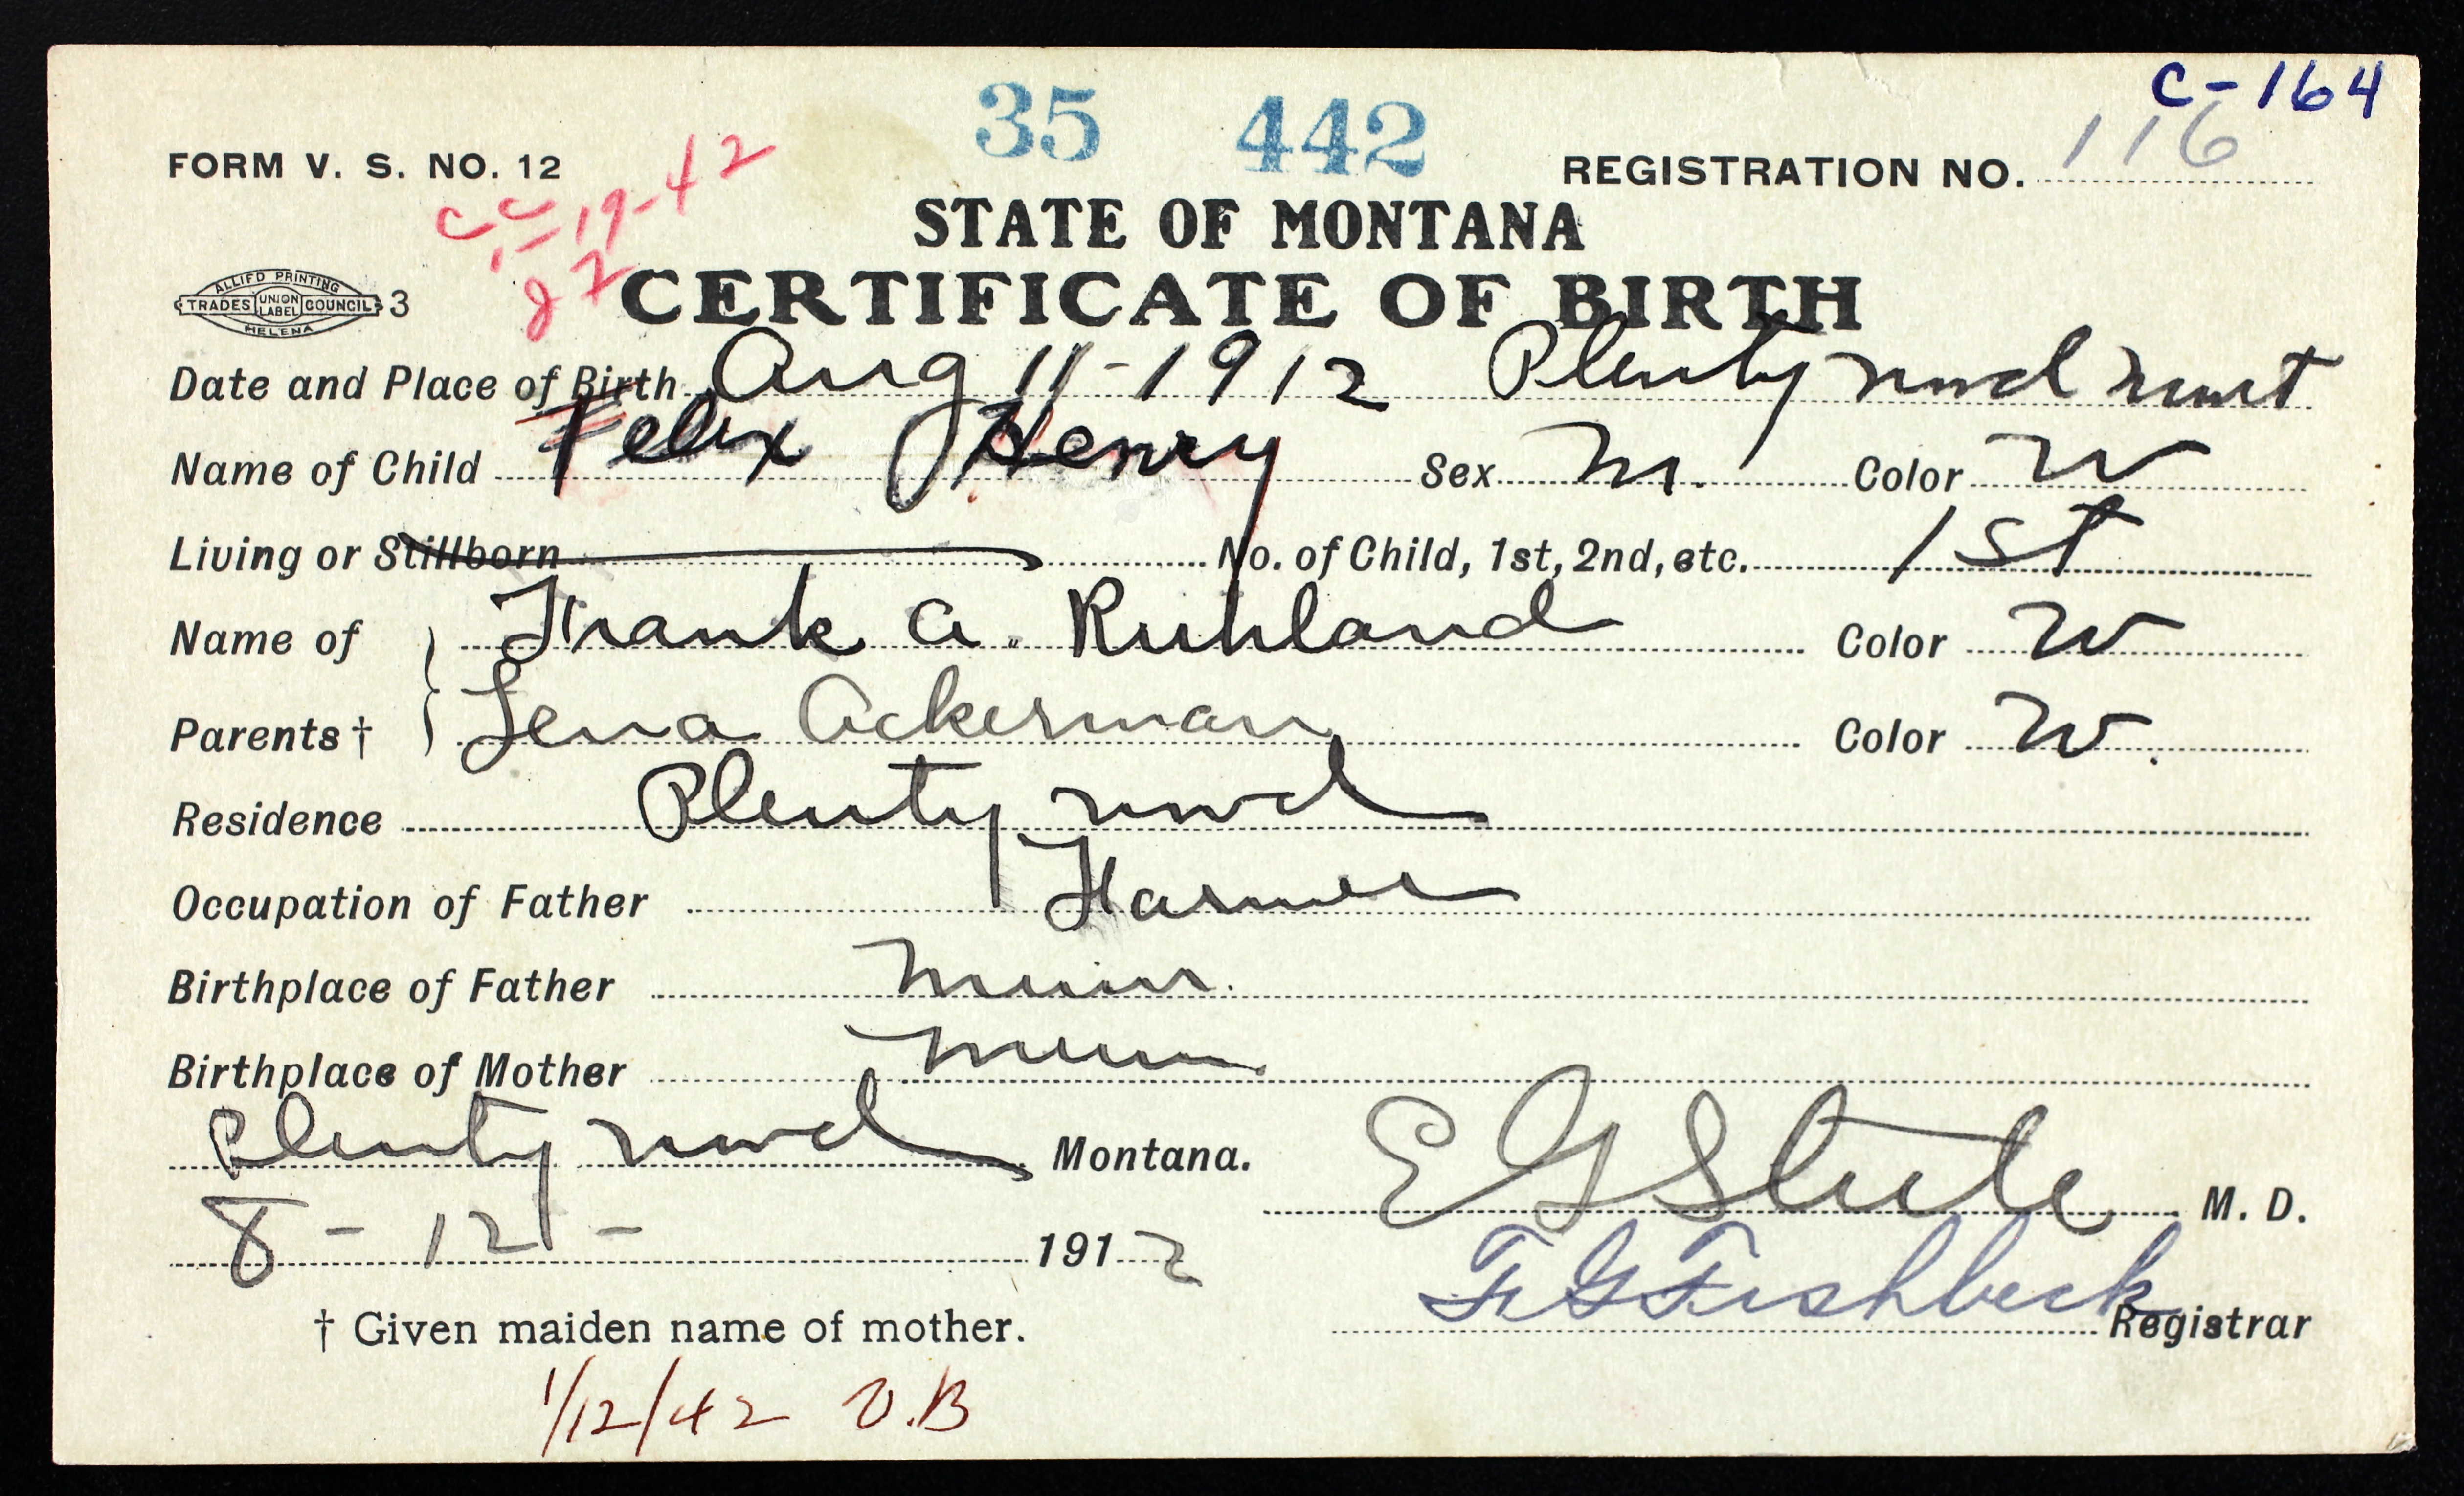 C-164
35 442
FORM V. S. NO. 12
REGISTRATION NO. 116
STATE OF MONTANA
CERTIFICATE OF BIRTH
ALLIED PRINTING
TRADES UNION LABEL COUNCIL 3
HELENA
Date and Place of Birth Aug 11-1912 Plentywood Mont
Name of Child Felix Henry Sex M. Color W
Living or Stillborn No. of Child, 1st, 2nd, etc. 1st
Name of Frank A. Ruhland Color W
Parents† Lena Ackerman Color W.
Residence Plentywood
Occupation of Father Farmer
Birthplace of Father Minn.
Birthplace of Mother Minn.
Plentywood Montana.
E G Stute M. D.
8-12- 1912
F G Fishbeck Registrar
† Given maiden name of mother.
1/12/42 V.B